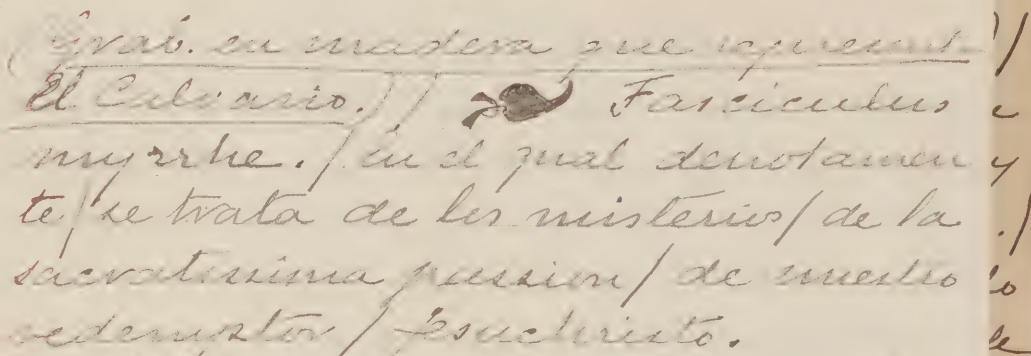 (Grab. en madera que represent
El Calvario.)/ ❧ Fasciculus
myrrhe. / en el qual deuotamen
te / se trata de los misterios / de la
sacratissima passion / de nuestro
redemptor / Jesuchristo.